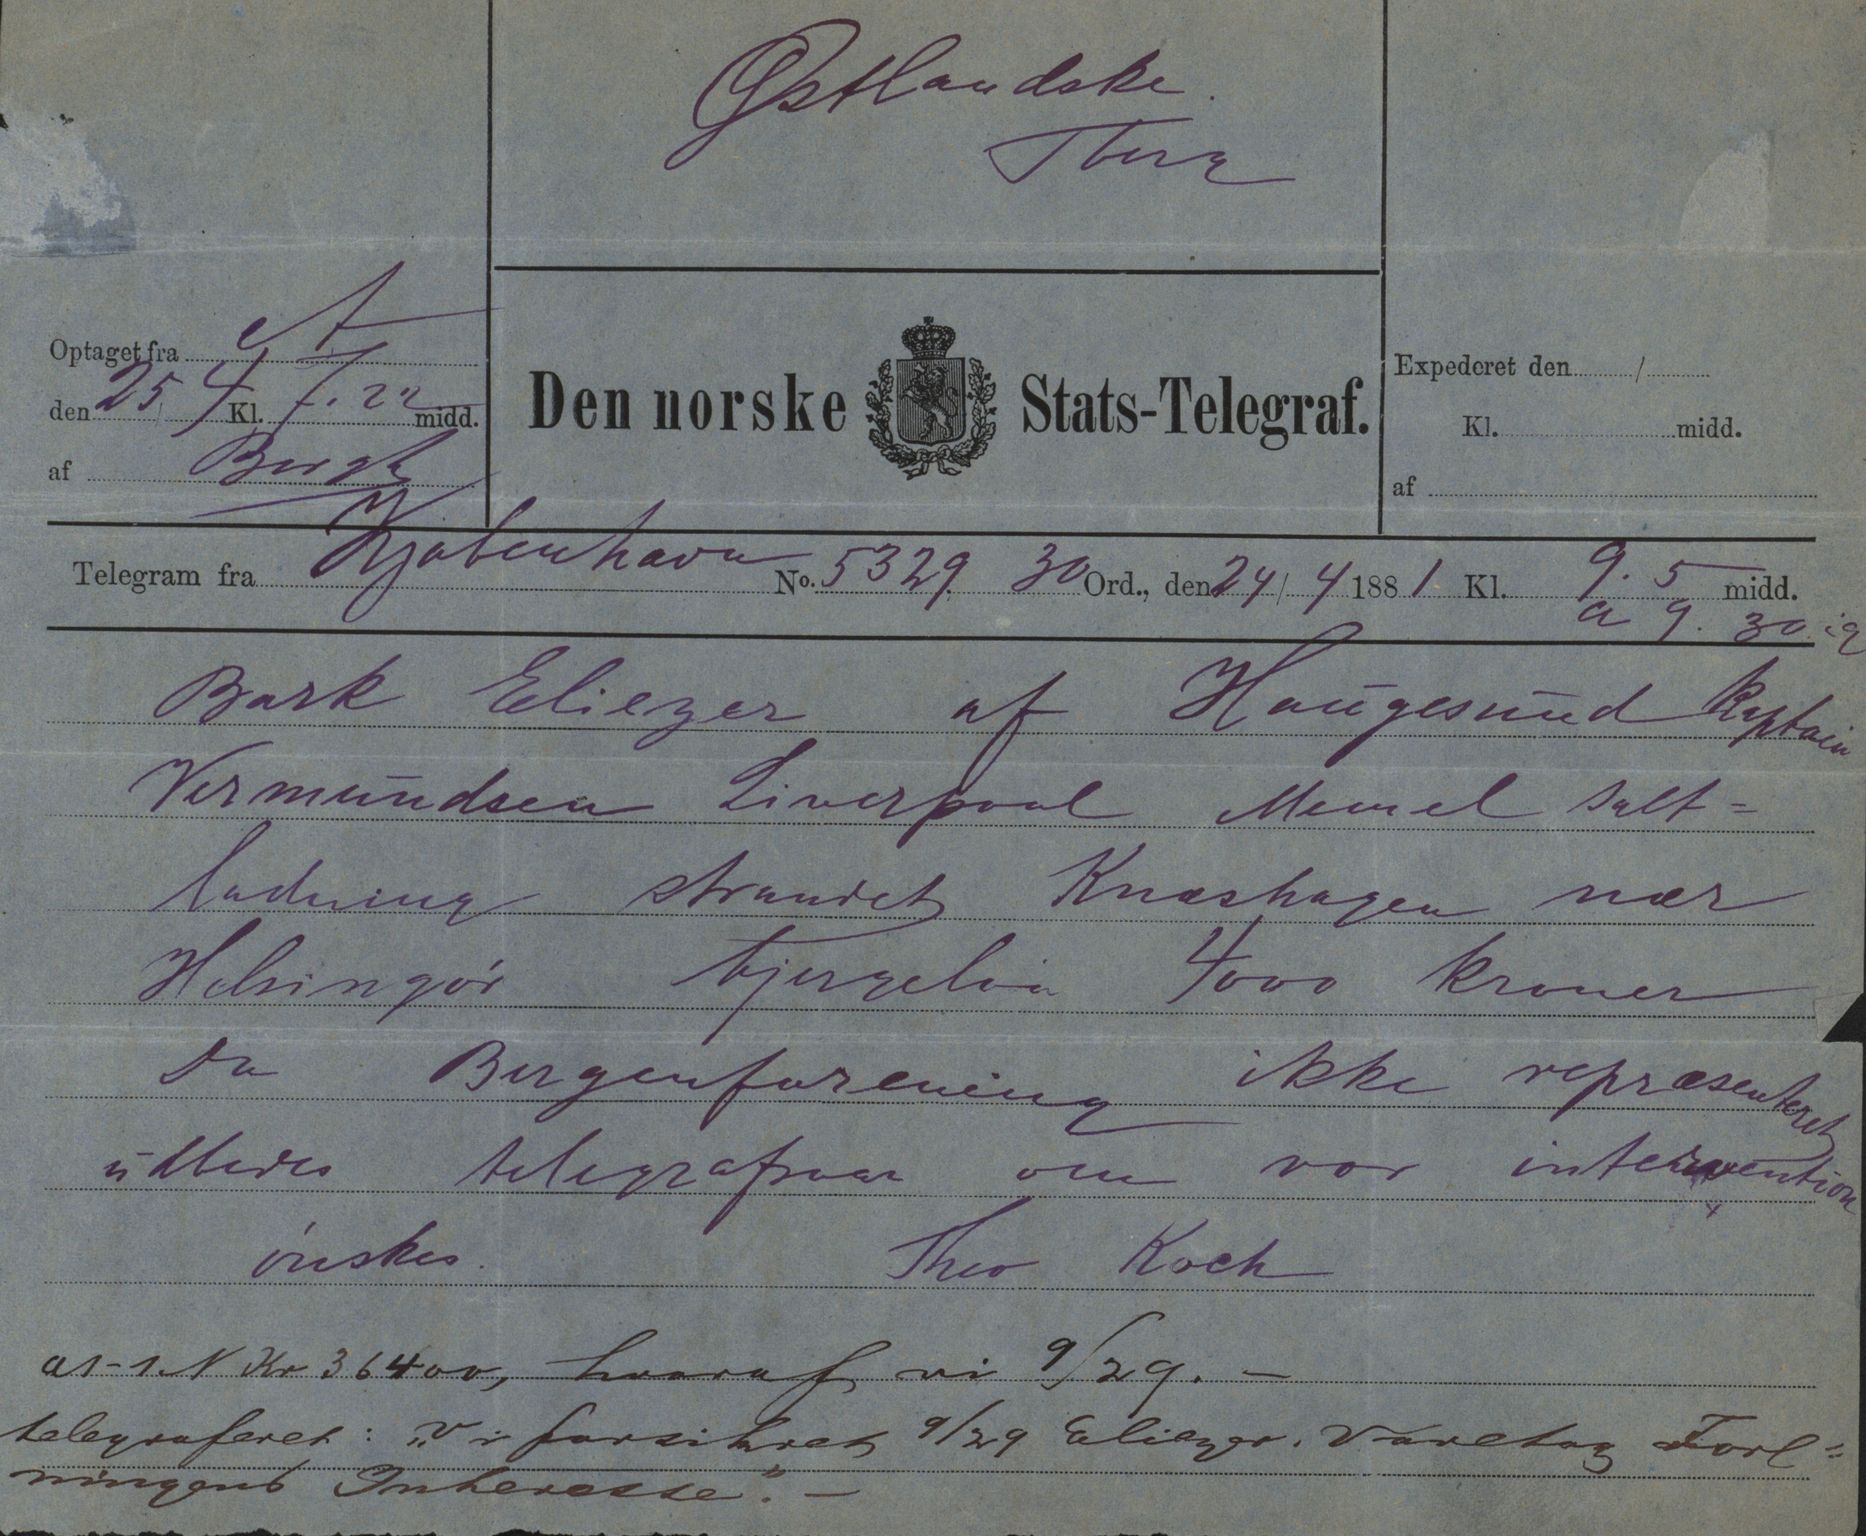 Østlandske
Tberg
Optaget fra
den 25/4 Kl. 7.22 midd.
af Bergh
Den norske Stats-Telegraf.
Expederet den / 
Kl. midd.
af
Telegram fra Kjøbenhavn No. 5329 30 Ord., den 24/4 1881 Kl. 9.5 midd.
a 9.30
Bark Eliezer af Haugesund Kaptain
Vermundsen Liverpool Memel salt=
ladning strandet Knæshagen nær
Helsingör bjergelön 4000 kroner
Da Bergenforening ikke repræsenteret
udbedes telegrafsvar om vor intervention
önskes. Theo Koch
Kr 36400, hvoraf vi 9/29. —
telegraferet: "Vi forsikret 9/29 Eliezer. Varetag Forl=
ningens Interesse". —